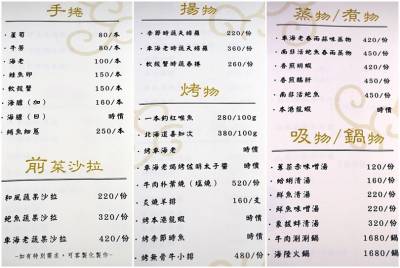 手捲
蘆筍 80/本
牛蒡 80/本
海老 100/本
鮭魚卵 150/本
軟殼蟹 150/本
海膽(加) 160/本
海膽(日) 時價
鮪魚細蔥 250/本
前菜沙拉
和風蔬果沙拉 220/份
鮑魚蔬果沙拉 320/份
車海老蔬果沙拉 420/份
-如有特別需求,可客製化製作-
揚物
季節時蔬天婦羅 220/份
車海老時蔬天婦羅 360/份
軟殼蟹時蔬春捲 260/份
烤物
一本釣紅喉魚 280/100g
北海道喜知次 380/100g
烤車海老 時價
車海老焗烤佐明太子醬 時價
牛肉朴葉燒(塩燒) 520/份
炙燒羊排 160/支
烤本港龍蝦 時價
烤季節時魚 時價
烤無骨牛小排 480/份
蒸物/煮物
車海老春雨蒜味蒸物 420/份
南非活鮑魚春雨蒸物 450/份
香煎明蝦 420/份
香煎鵝肝 450/份
南非活鮑魚 450/份
本港龍蝦 時價
吸物/鍋物
蔥菜赤味噌湯 120/份
蛤蜊清湯 160/份
鮮魚清湯 220/份
鮮魚味噌湯 220/份
象拔蚌清湯 320/份
牛肉涮涮鍋 1680/鍋
海陸火鍋 1680/鍋